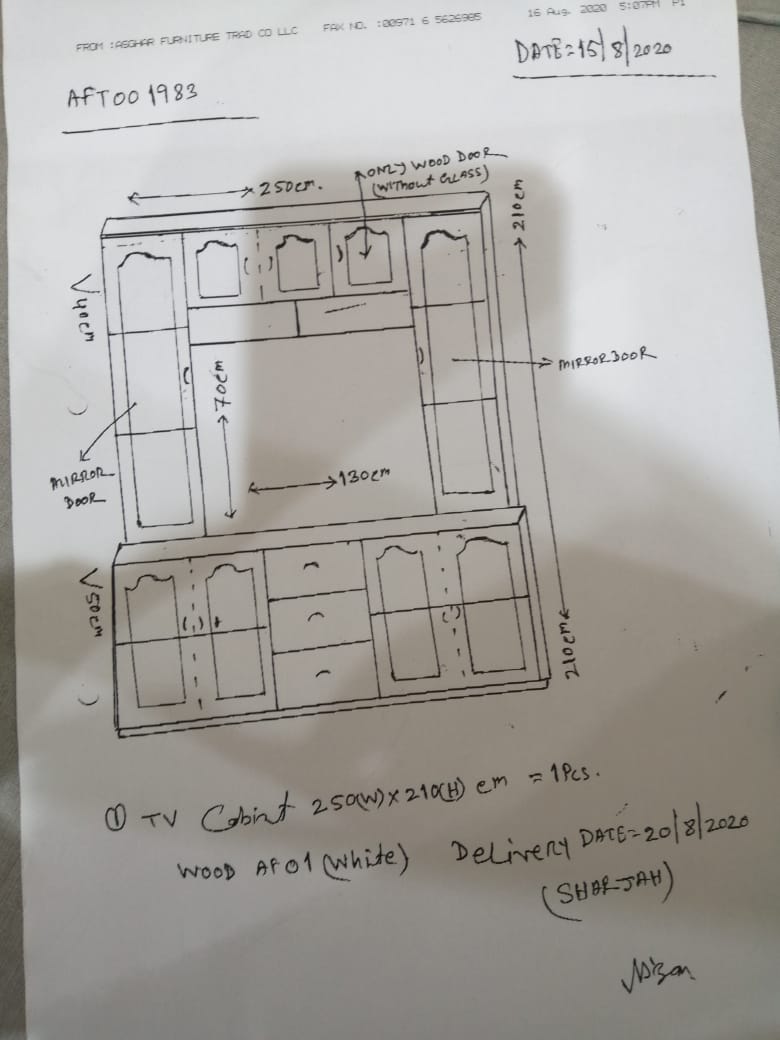 FROM :ASGHAR FURNITURE TRAD CO LLC FAX NO. :00971 6 5626985 16 Aug. 2020 5:07PM P1
DATE=15/8/2020
AFTOO 1983
250cm.
ONLY WOOD DOOR
(without GLASS)
210cm
V40cm
70cm
MIRROR DOOR
MIRROR
DOOR
130cm
V50cm
210cm
① TV Cabint 250(W)x210(H) cm = 1Pcs.
WOOD AF01 (white) Delivery DATE=20/8/2020
(SHARJAH)